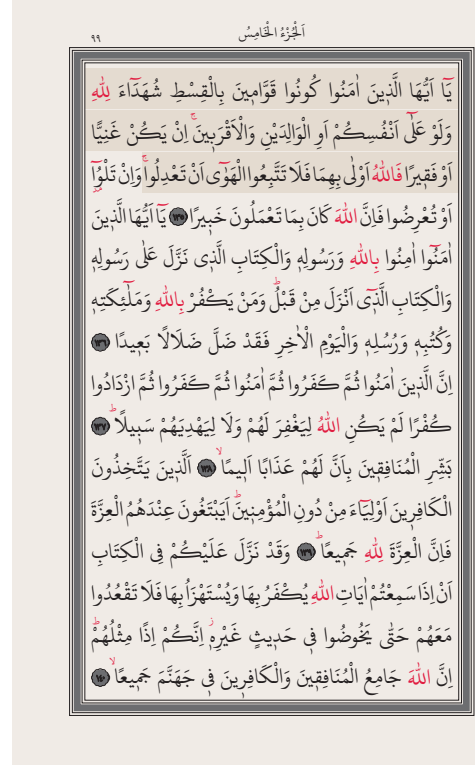 اَلْجُزْءُ الْخَامِسُ
٩٩
يَٓا اَيُّهَا الَّذ۪ينَ اٰمَنُوا كُونُوا قَوَّام۪ينَ بِالْقِسْطِ شُهَدَٓاءَ لِلّٰهِ
وَلَوْ عَلٰٓى اَنْفُسِكُمْ اَوِ الْوَالِدَيْنِ وَالْاَقْرَب۪ينَۚ اِنْ يَكُنْ غَنِيًّا
اَوْ فَق۪يرًا فَاللّٰهُ اَوْلٰى بِهِمَا فَلَا تَتَّبِعُوا الْهَوٰٓى اَنْ تَعْدِلُواۚ وَاِنْ تَلْوُٓ۫ا
اَوْ تُعْرِضُوا فَاِنَّ اللّٰهَ كَانَ بِمَا تَعْمَلُونَ خَب۪يرًا ﴿١٣٥﴾ يَٓا اَيُّهَا الَّذ۪ينَ
اٰمَنُٓوا اٰمِنُوا بِاللّٰهِ وَرَسُولِه۪ وَالْكِتَابِ الَّذ۪ي نَزَّلَ عَلٰى رَسُولِه۪
وَالْكِتَابِ الَّذ۪ٓي اَنْزَلَ مِنْ قَبْلُۜ وَمَنْ يَكْفُرْ بِاللّٰهِ وَمَلٰٓئِكَتِه۪
وَكُتُبِه۪ وَرُسُلِه۪ وَالْيَوْمِ الْاٰخِرِ فَقَدْ ضَلَّ ضَلَالًا بَع۪يدًا ﴿١٣٦﴾
اِنَّ الَّذ۪ينَ اٰمَنُوا ثُمَّ كَفَرُوا ثُمَّ اٰمَنُوا ثُمَّ كَفَرُوا ثُمَّ ازْدَادُوا
كُفْرًا لَمْ يَكُنِ اللّٰهُ لِيَغْفِرَ لَهُمْ وَلَا لِيَهْدِيَهُمْ سَب۪يلًاۜ ﴿١٣٧﴾
بَشِّرِ الْمُنَافِق۪ينَ بِاَنَّ لَهُمْ عَذَابًا اَل۪يمًاۙ ﴿١٣٨﴾ اَلَّذ۪ينَ يَتَّخِذُونَ
الْكَافِر۪ينَ اَوْلِيَٓاءَ مِنْ دُونِ الْمُؤْمِن۪ينَۜ اَيَبْتَغُونَ عِنْدَهُمُ الْعِزَّةَ
فَاِنَّ الْعِزَّةَ لِلّٰهِ جَم۪يعًاۜ ﴿١٣٩﴾ وَقَدْ نَزَّلَ عَلَيْكُمْ فِي الْكِتَابِ
اَنْ اِذَا سَمِعْتُمْ اٰيَاتِ اللّٰهِ يُكْفَرُ بِهَا وَيُسْتَهْزَاُ بِهَا فَلَا تَقْعُدُوا
مَعَهُمْ حَتّٰى يَخُوضُوا ف۪ي حَد۪يثٍ غَيْرِه۪ۘ اِنَّكُمْ اِذًا مِثْلُهُمْۜ
اِنَّ اللّٰهَ جَامِعُ الْمُنَافِق۪ينَ وَالْكَافِر۪ينَ ف۪ي جَهَنَّمَ جَم۪يعًاۙ ﴿١٤٠﴾